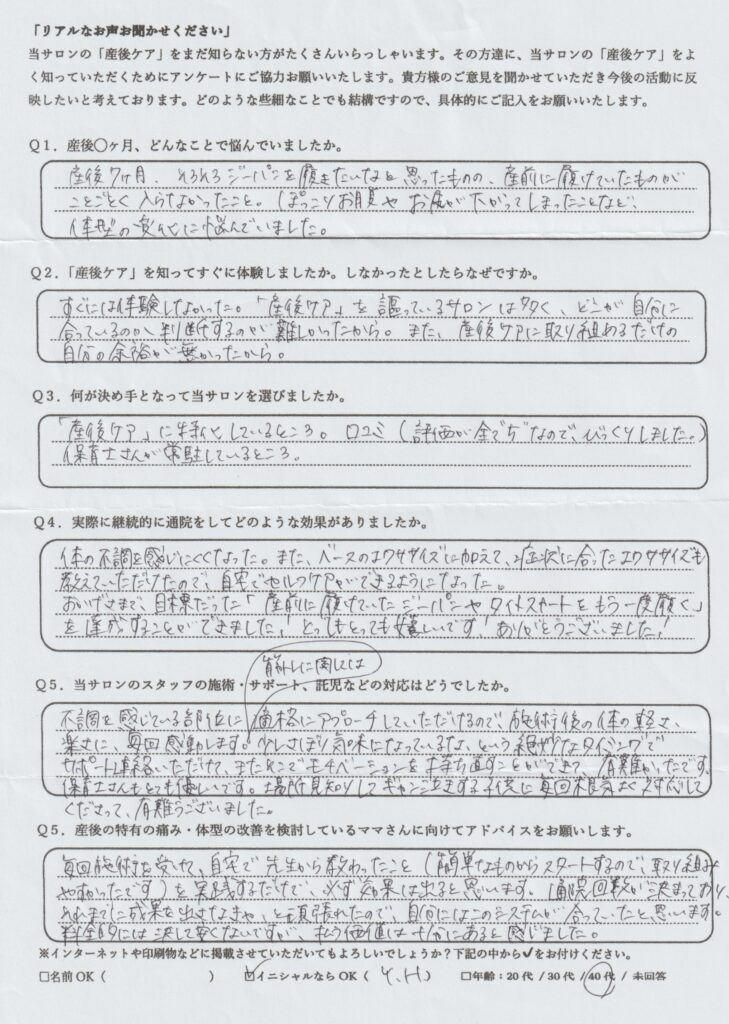 「リアルなお声お聞かせください」
当サロンの「産後ケア」をまだ知らない方がたくさんいらっしゃいます。その方達に、当サロンの「産後ケア」をよ
く知っていただくためにアンケートにご協力お願いいたします。貴方様のご意見を聞かせていただき今後の活動に反
映したいと考えております。どのような些細なことでも結構ですので、具体的にご記入をお願いいたします。
Q1．産後〇ヶ月、どんなことで悩んでいましたか。
産後7ヶ月、そろそろジーパンを履きたいなと思ったものの、産前に履けていたものが
ことごとく入らなかったこと。ぽっこりお腹や お尻が下がってしまったことなど、
体型の変化に悩んでいました。
Q2．「産後ケア」を知ってすぐに体験しましたか。しなかったとしたらなぜですか。
すぐには体験しなかった。「産後ケア」を謳っているサロンは多く、どこが自分に
合っているのか判断するのが難しかったから。また、産後ケアに取り組めるだけの
自分の余裕が無かったから。
Q3．何が決め手となって当サロンを選びましたか。
「産後ケア」に特化しているところ。口コミ（評価が全て"5"なので、びっくりしました。）
保育士さんが常駐しているところ。
Q4．実際に継続的に通院をしてどのような効果がありましたか。
体の不調を感じにくくなった。また、ベースのエクササイズに加えて、症状に合ったエクササイズも
教えていただけたので、自宅でセルフケアができるようになった。
おかげさまで、目標だった「産前に履けていたジーパンやタイトスカートをもう一度履く」
を達成することができました！とってもとっても嬉しいです！ありがとうございました！
筋トレに関しては
Q5．当サロンのスタッフの施術・サポート、託児などの対応はどうでしたか。
不調を感じている部位に適格にアプローチしていただけるので、施術後の体の軽さ、
楽さに、毎回感動します。少しさぼり気味になっているな、という絶妙なタイミングで
サポート連絡いただけて、またそこでモチベーションを持ち直すことができて、有難かったです。
保育士さんもとても優しいです。場所見知りしてギャン泣きする子供に毎回根気よく対応して
くださって、有難うございました。
Q5．産後の特有の痛み・体型の改善を検討しているママさんに向けてアドバイスをお願いします。
毎回施術を受けて、自宅で先生から教わったこと（簡単なものからスタートするので、取り組み
やすかったです）を実践するだけで、必ず効果は出ると思います。通院回数が決まっており、
それまでに成果を出さなきゃ、と頑張れたので、自分にはこのシステムが合っていたと思います。
料金的には決して安くないですが、払う価値は十分にあると感じました。
※インターネットや印刷物などに掲載させていただいてもよろしいでしょうか？下記の中から✔をお付けください。
□名前OK（　　　　　　）　☑イニシャルならOK（ Y.H ）　□年齢：20代 / 30代 / 40代 / 未回答